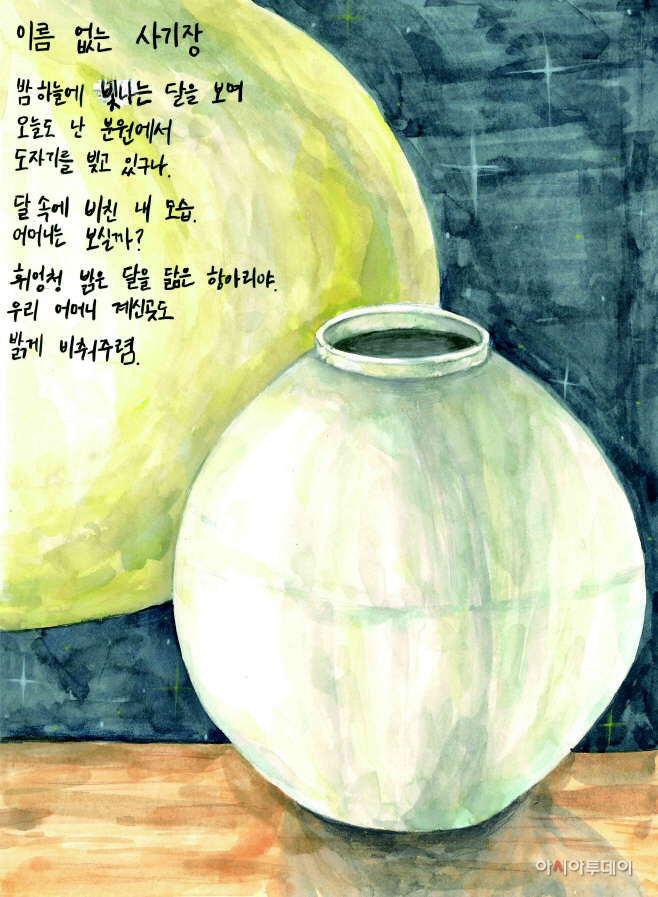 이름 없는 사기장
밤하늘에 빛나는 달을 보며
오늘도 난 분원에서
도자기를 빚고 있구나.
달 속에 비친 내 모습.
어머니는 보실까?
휘엉청 밝은 달을 닮은 항아리야.
우리 어머니 계신곳도
밝게 비춰주렴.
아시아투데이